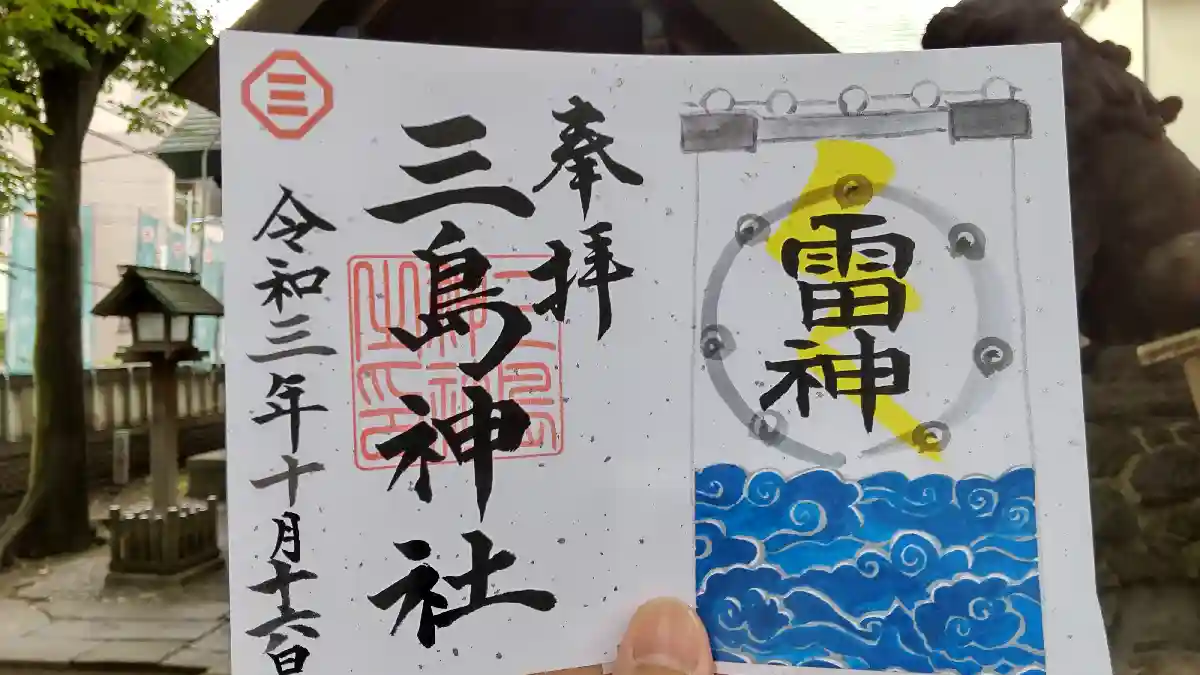 雷神
奉拝
三島神社
令和三年十月十六日
三